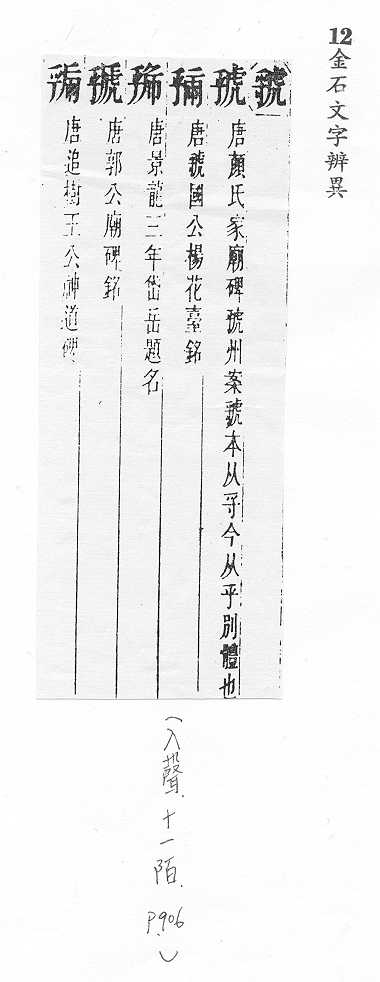 12金石文字辨異
虢
虢 唐顏氏家廟碑虢州案虢本从寽今从乎別體也
唐虢國公楊花臺銘
唐景龍三年岱岳題名
唐郭公廟碑銘
唐追樹王公神道碑
(入聲.十一陌.P.906)